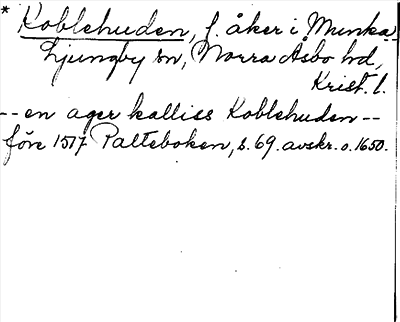 * Koblehuden, f. åker i Munka
Ljungby sn, Norra Åsbo hd,
Krist. l.
-- en ager kalliss Koblehuden --
före 1517 Palteboken, s. 69. avskr. o. 1650.